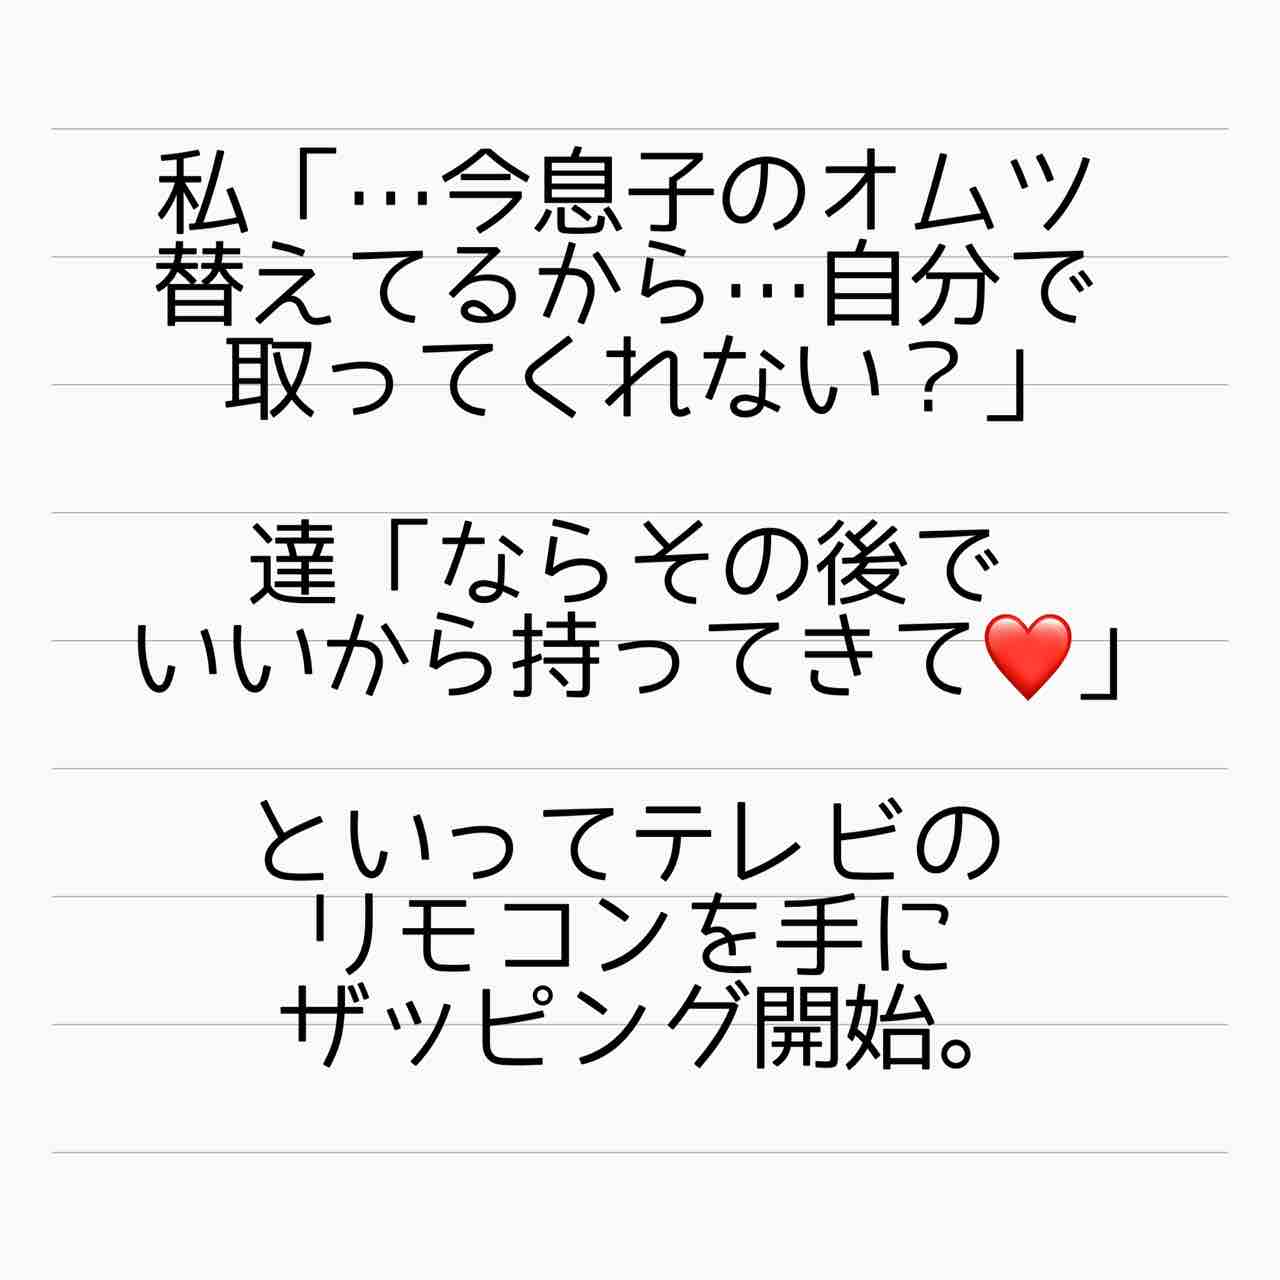 私「…今息子のオムツ
替えてるから…自分で
取ってくれない？」
達「ならその後で
いいから持ってきて❤️」
といってテレビの
リモコンを手に
ザッピング開始。